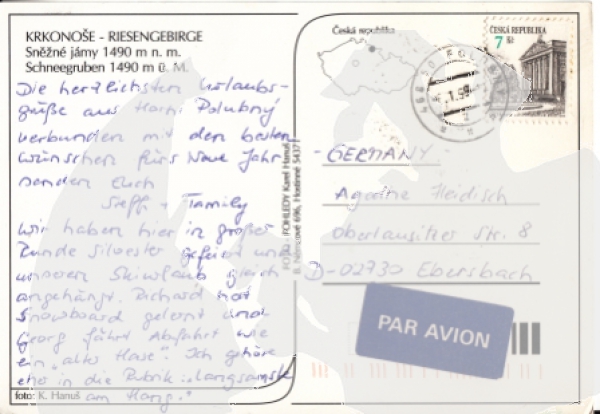 KRKONOŠE - RIESENGEBIRGE
Sněžné jámy 1490 m n. m.
Schneegruben 1490 m ü. M.
Die herzlichsten Urlaubs-
grüße aus Horni Polubný
verbunden mit den besten
Wünschen fürs Neue Jahr
senden Euch
Steffi + Family
Wir haben hier in großer
Runde Silvester gefeiert und
unseren Skiurlaub gleich
angehängt. Richard hat
Snowboard gelernt und
Georg fährt Abfahrt wie
ein "alter Hase". Ich gehöre
eher in die Rubrik: "langsamste
am Hang."
foto: K. Hanuš
FOTO - POHLEDY Karel Hanuš
B. Němcové 696, Hostinné 54371
Česká republika
7 Kč
ČESKÁ REPUBLIKA
468 50
- GERMANY -
Agathe Heidisch
Oberlausitzer Str. 8
D-02730 Ebersbach
PAR AVION